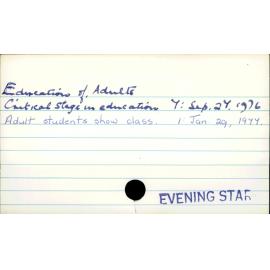 Education of Adults
Critical stage in education 7: Sep. 24, 1976
Adult students show class. 1: Jan 29, 1977.
EVENING STAR